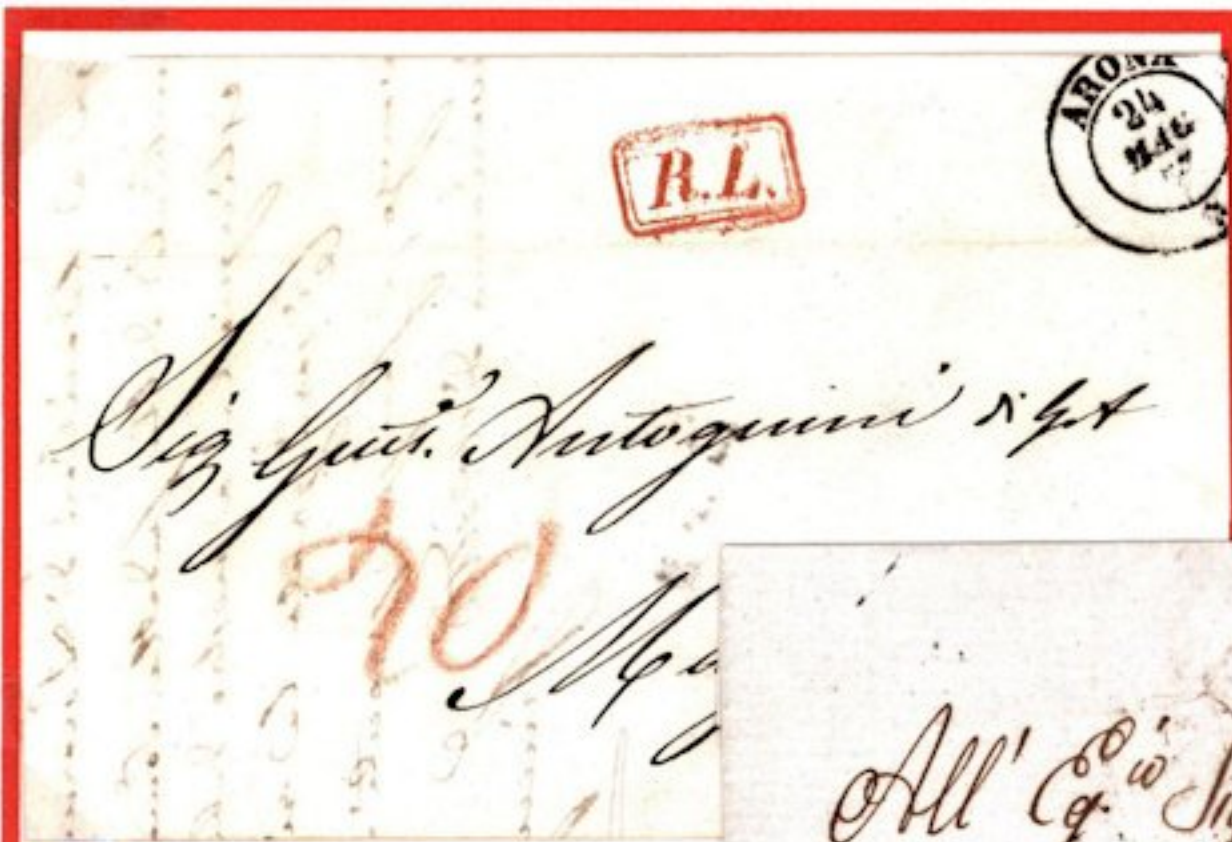 ARONA
24
MAG
R.L.
Sig Gius. Antognini di G.A
20
All' Eg.io